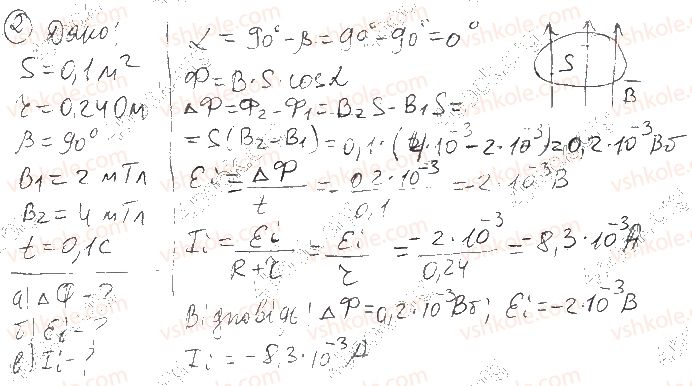 2 Дано:
S = 0,1 м²
r = 0,24 Ом
β = 90°
B₁ = 2 мТл
B₂ = 4 мТл
t = 0,1 с
а) ΔΦ - ?
б) Ei - ?
в) Ii - ?
α = 90° - β = 90° - 90° = 0°
Φ = B · S · cosα
ΔΦ = Φ₂ - Φ₁ = B₂S - B₁S =
= S(B₂ - B₁) = 0,1 · (4·10⁻³ - 2·10⁻³) = 0,2·10⁻³ Вб
Ei = ΔΦ/t = 0,2·10⁻³/0,1 = -2·10⁻³ В
Ii = Ei/(R+r) = Ei/r = -2·10⁻³/0,24 = -8,3·10⁻³ А
Відповідь: ΔΦ = 0,2·10⁻³ Вб; Ei = -2·10⁻³ В
Ii = -8,3·10⁻³ А
S
B
vshkole.com